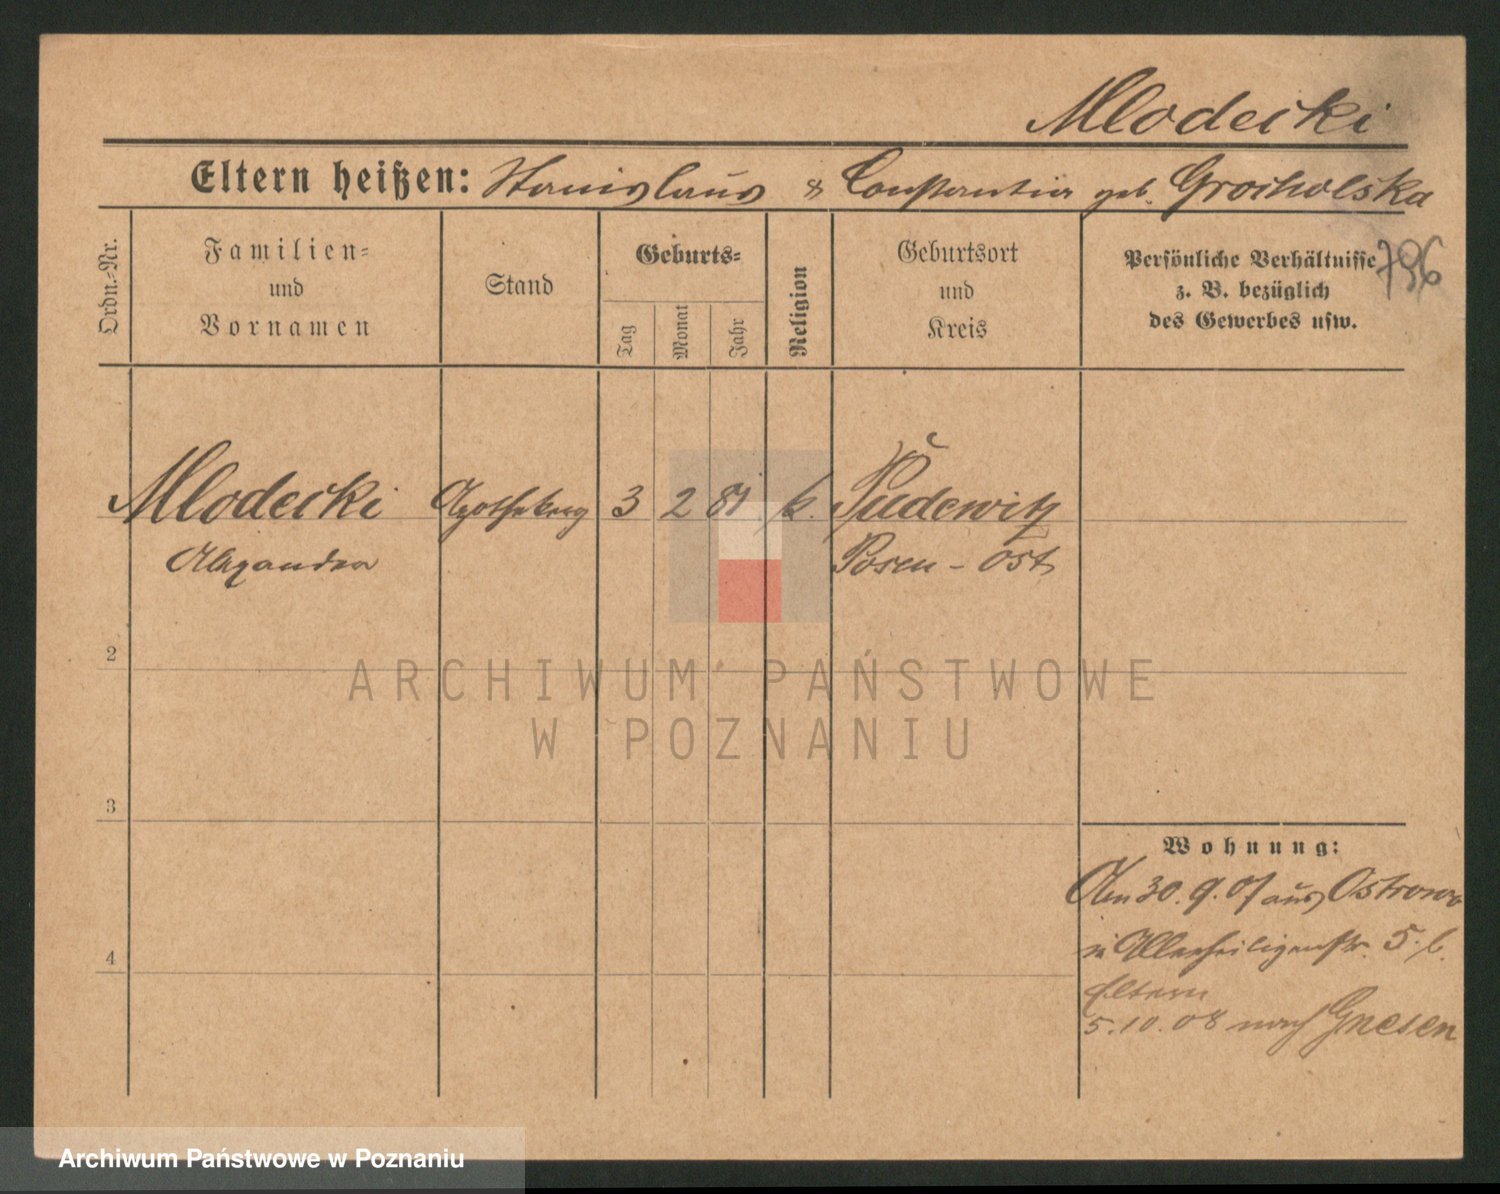 Mlodecki
Eltern heißen: Stanislaus & Constantia geb. Grocholska
796
Ordn.-Nr.
Familien- und Vornamen
Stand
Geburts-
Tag
Monat
Jahr
Religion
Geburtsort und Kreis
Persönliche Verhältnisse z. B. bezüglich des Gewerbes usw.
Mlodecki 3 2 81 k. Pudewitz
Alexander Posen-Ost
2
ARCHIWUM PAŃSTWOWE
W POZNANIU
3
Wohnung:
Am 30.9.07 aus Ostrowo
in Allerheiligenstr. 5. b.
4
Eltern
5.10.08 nach Gnesen
Archiwum Państwowe w Poznaniu